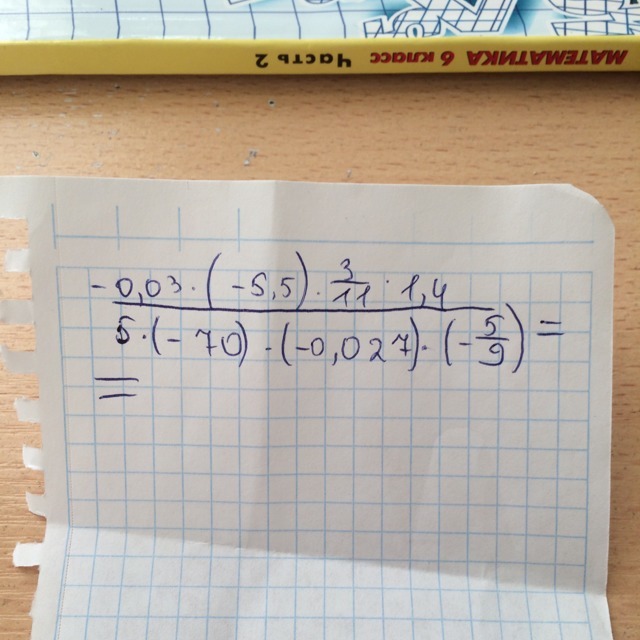 МАТЕМАТИКА 6 класс Часть 2
-0,03·(-5,5)·3/11·1,4
5·(-70)·(-0,027)·(-5/9)=
=